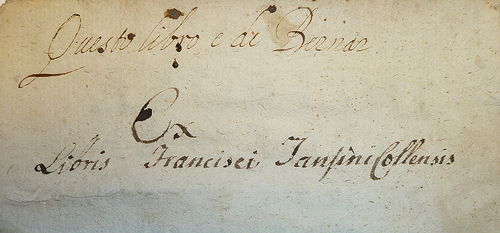 Questo libro e di Bernar
Ex
Libris Francisci Jansini Collensis